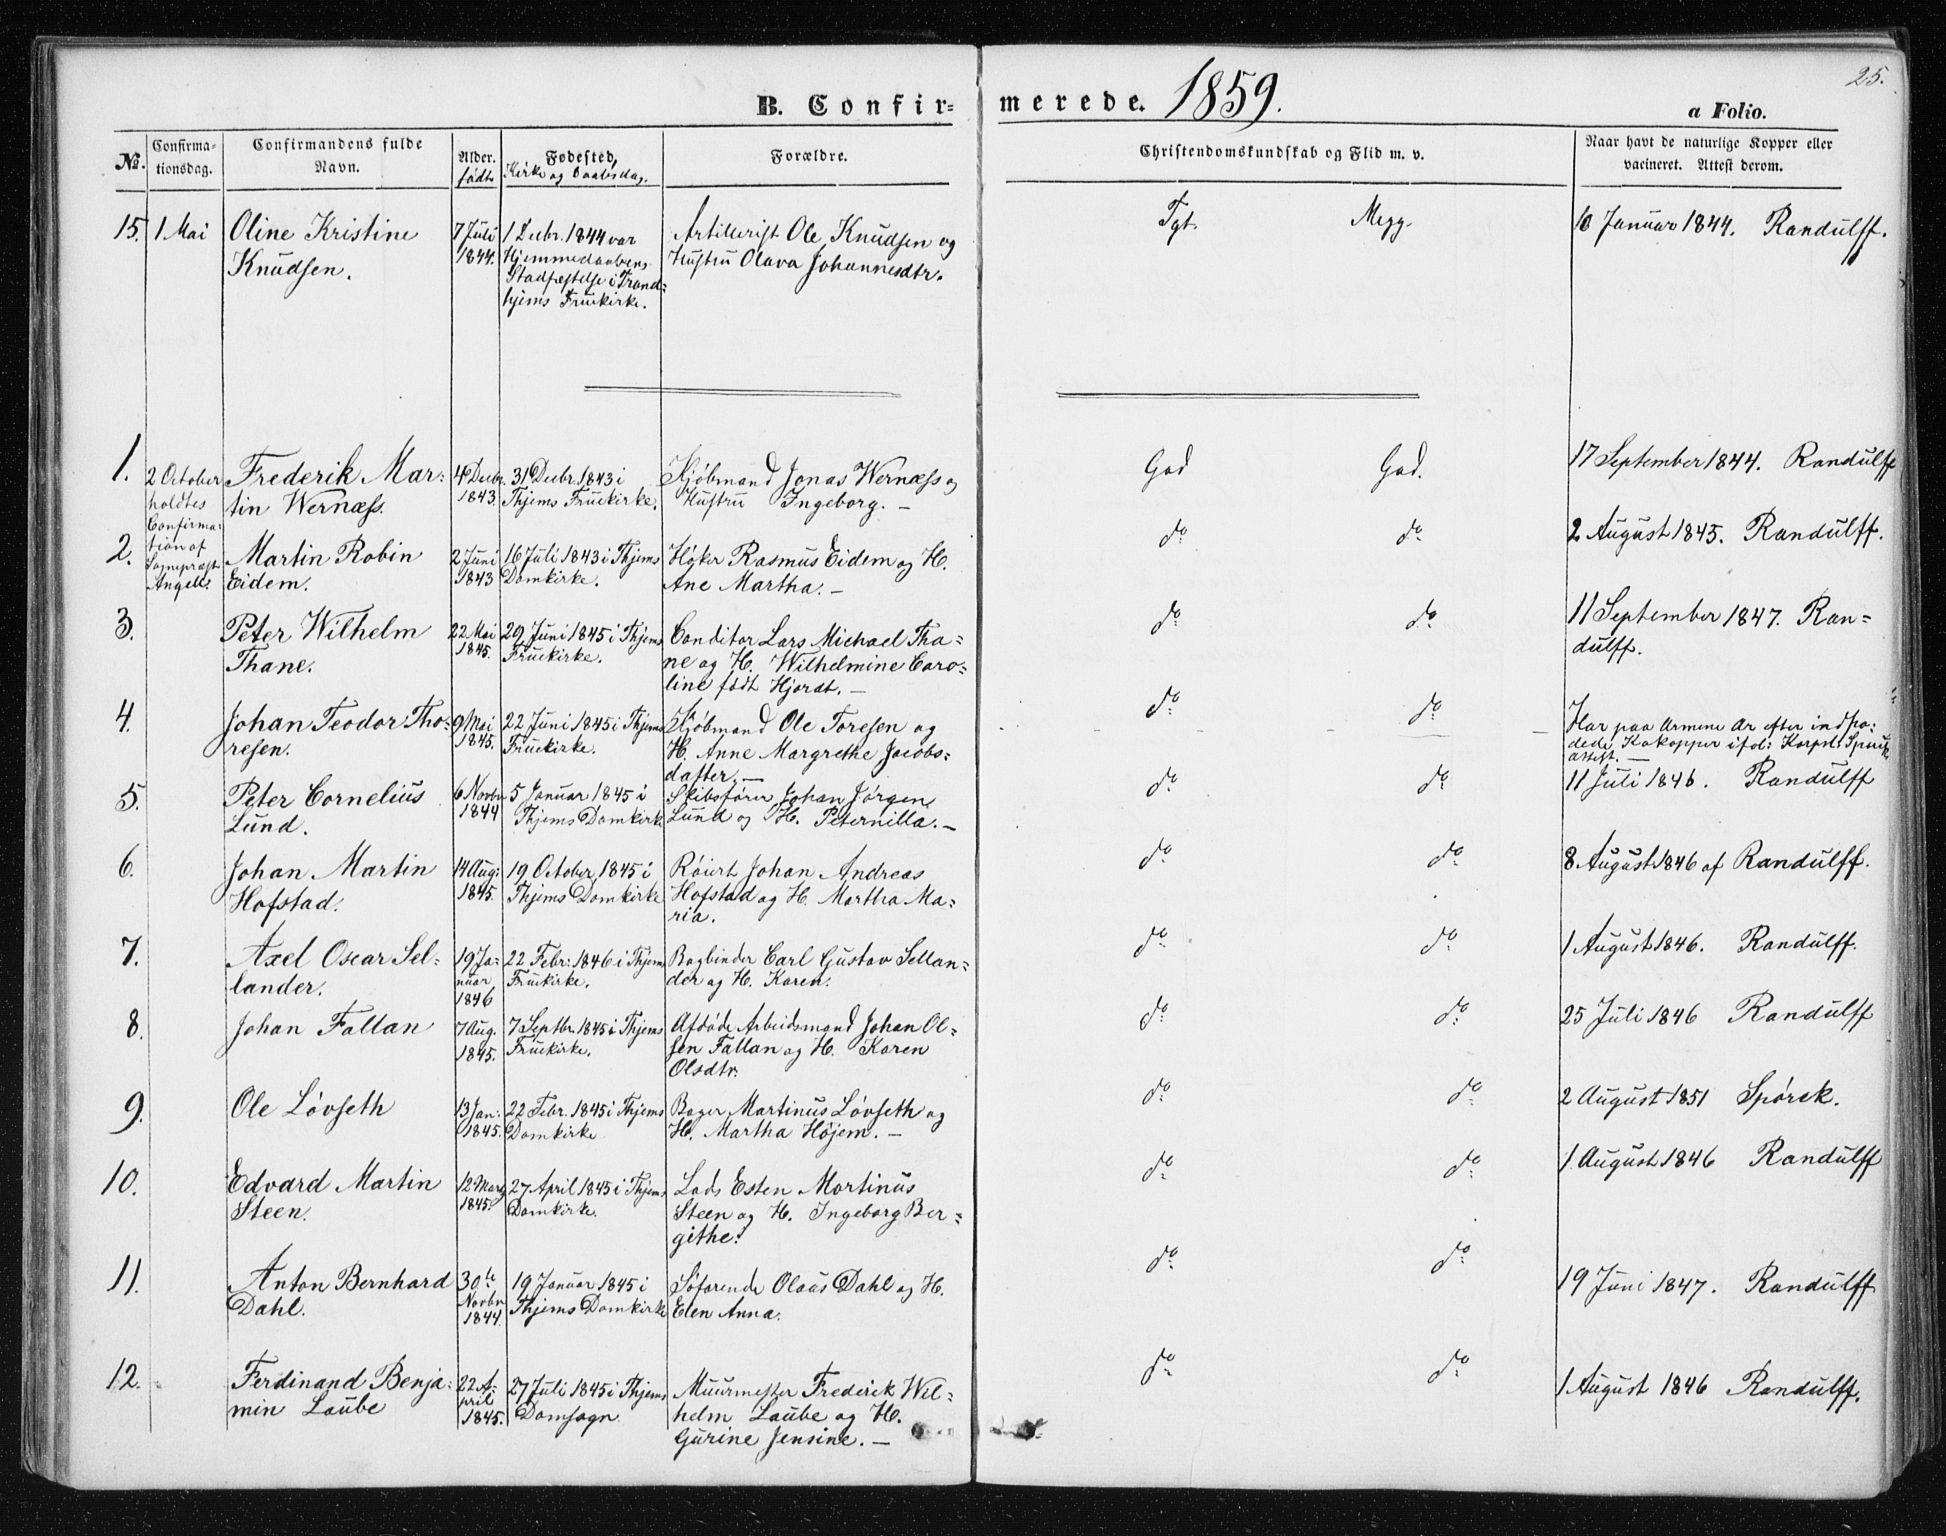 25.
B. Confir- merede. 1859.
a Folio.
No. Confirma-tionsdag. Confirmandens fulde Navn. Alder. født Fødested, Kirke og Daabsdag. Forældre. Christendomskundskab og Flid m. v. Naar havt de naturlige Kopper eller vacineret. Attest derom.
15. 1 Mai Oline Kristine 7 Juli 1 Decbr. 1844 var Artillerist Ole Knudsen og Tgt. Megg. 10 Januar 1844. Randulff.
Knudsen. 1844. Hjemmedaabens Hustru Olava Johannesdtr.
Stadfæstelse i Trond=
hjems Fruekirke.
1. 2 October Frederik Mar= 4 Decbr. 31 Decbr. 1843 i Kjøbmand Jonas Wernæss og God God. 17 September 1844. Randulff
holdtes tin Wernæss. 1843. Thjems Fruekirke. Hustru Ingeborg. —
Confirma=
2. tion af Martin Robin 2 Juni 16 Juli 1843 i Thjems Høker Rasmus Eidem og H. do do 2 August 1845. Randulff.
Sognepræst
Angell. Eidem. 1843 Domkirke. Ane Martha. —
3. Peter Wilhelm 22 Mai 29 Juni 1845 i Thjems Conditor Lars Michael Tha= do do 11 September 1847. Ran=
Thane. 1845. Fruekirke. ne og H. Wilhelmine Caro= dulff.
line født Hjordt. —
4. Johan Teodor Tho= 9 Mai 22 Juni 1845 i Thjems Kjøbmand Ole Toresen og do do Har paa Armene Ar efter indpo=
resen. 1845. Fruekirke. H. Anne Margrethe Jacobs= dede Kokopper ifol: Korpsl:
datter. — attest. —
5. Peter Cornelius 6 Novbr 5 Januar 1845 i Skibsfører Johan Jörgen do do 11 Juli 1846. Randulff
Lund. 1844 Thjems Domkirke Lund og H. Peternilla. —
6. Johan Martin 14 Aug: 19 October 1845 i Røiert Johan Andreas do do 8 August 1846 af Randulff.
Hofstad. 1845. Thjems Domkirke Hofstad og H. Martha Ma=
ria.
7. Axel Oscar Sel= 19 Ja= 22 Febr: 1846 i Thjems Bogbinder Carl Gustav Sellan= do do 1 August 1846. Randulff.
lander. nuar Fruekirke. der og H. Karen.
1846
8. Johan Fallan 7 Aug. 7 Septbr. 1845 i Thjems Afdøde Arbeidsmand Johan Ol= do do 25 Juli 1846 Randulff
1845. Fruekirke. sen Fallan og H. Karen
Olsdtr.
9. Ole Lövseth 13 Jan: 22 Febr. 1845 i Thjems Bager Martinus Lövseth og do do 2 August 1851 Spörck.
1845. Domkirke H. Martha Höjem. —
10. Edvard Martin 12 Marg 27 April 1845 i Thjems Lods Esten Mortinus do do 1 August 1846 Randulff
Steen. 1845. Domkirke. Steen og H. Ingeborg Ber=
githe.
11. Anton Bernhard 30te 19 Januar 1845 i Söfarende Olaus Dahl og H. do do 19 Juni 1847. Randulff
Dahl. Novbr 1844 Thjems Domkirke Elen Anna.
12. Ferdinand Benja= 22 A= 27 Juli 1845 i Thjems Muurmester Frederik Wil= do do 1 August 1846 Randulff.
min Laube pril 1845. Domsogn helm Laube og H.
Gurine Jensine. —